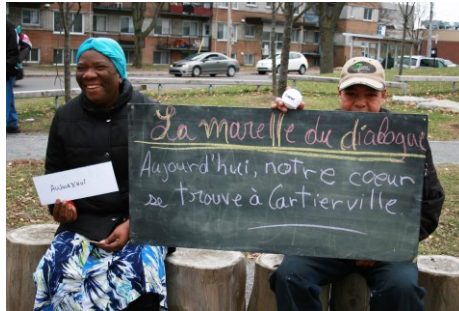 La marelle du dialogue
Aujourd'hui, notre cœur
se trouve à Cartierville